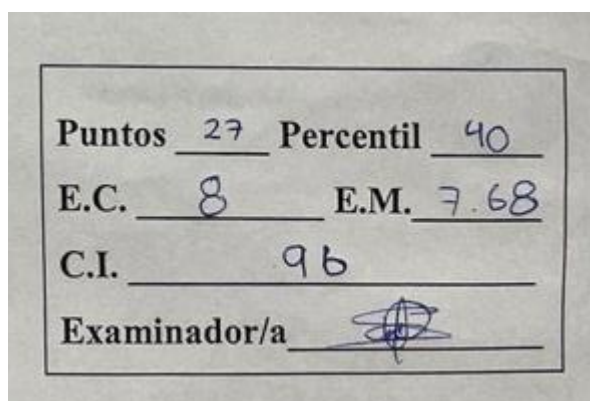 Puntos 27 Percentil 40
E.C. 8 E.M. 7.68
C.I. 96
Examinador/a